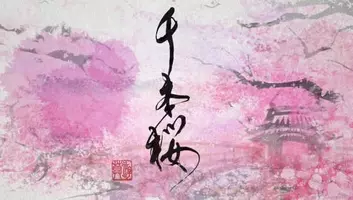 千本桜